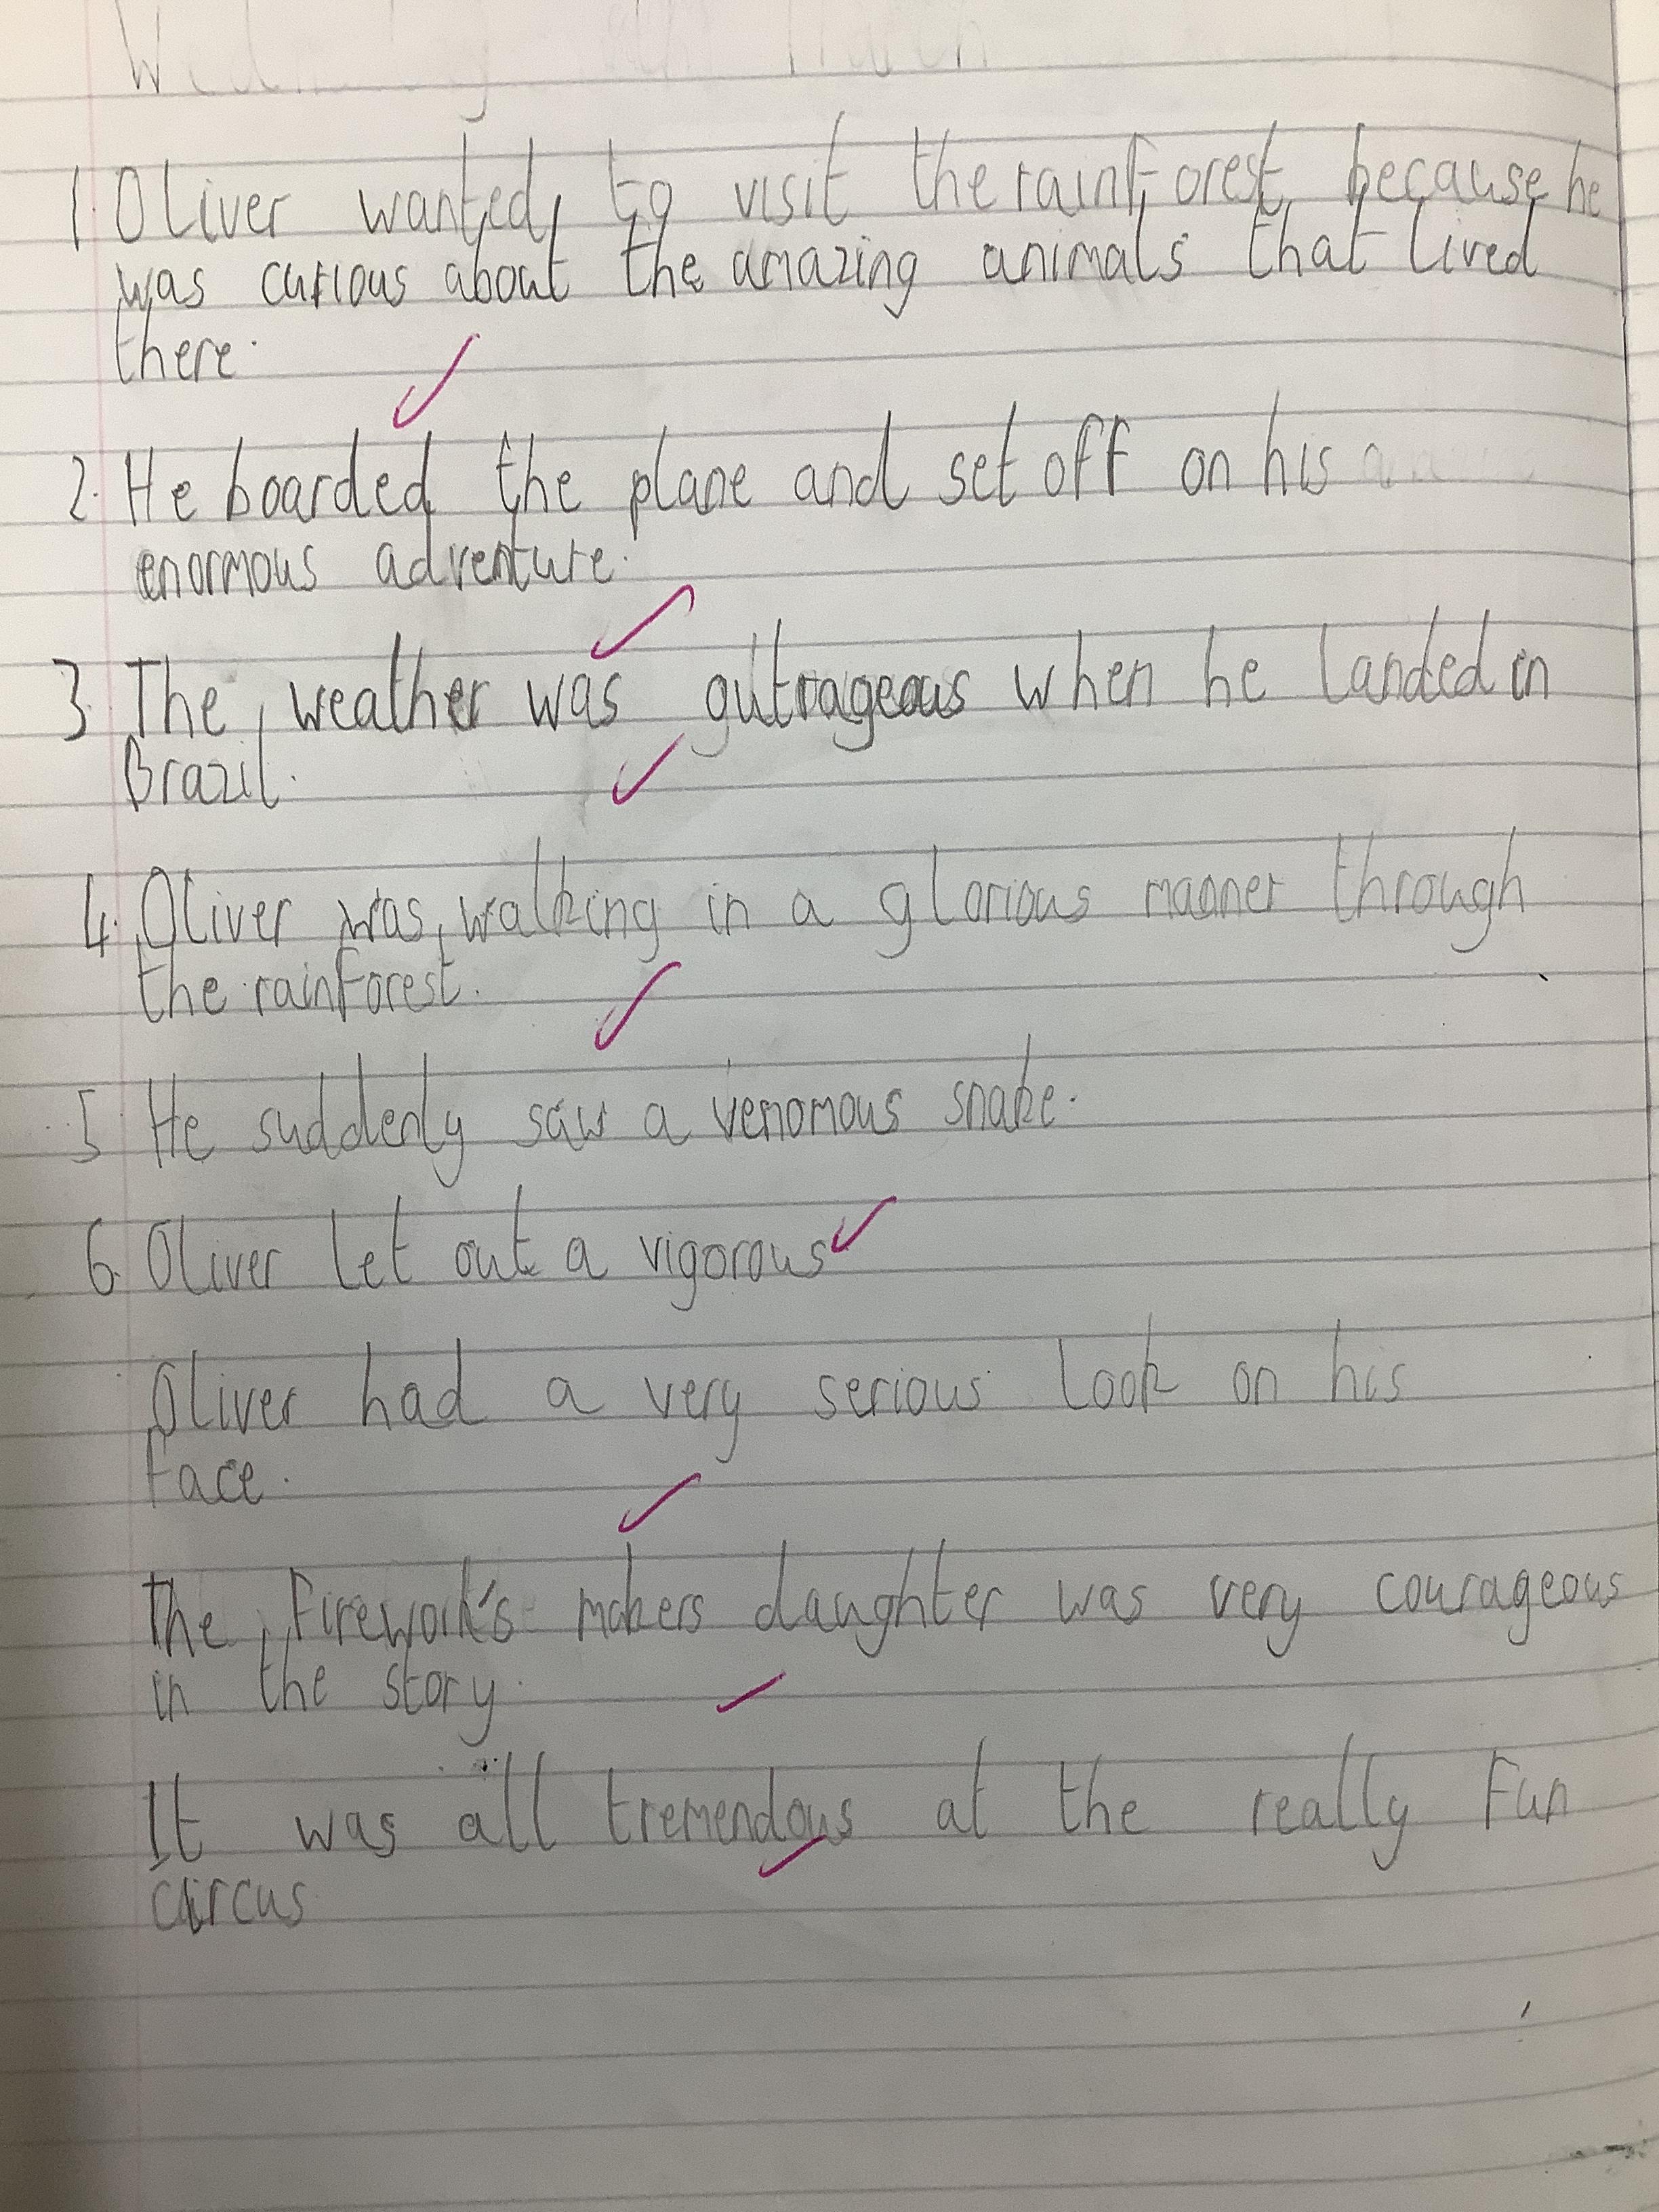 1. Oliver wanted to visit the rainforest because he
was curious about the amazing animals that lived
there.
2. He boarded the plane and set off on his
enormous adventure.
3 The weather was outrageous when he landed in
Brazil.
4. Oliver was walking in a glorious manner through
the rainforest.
5 He suddenly saw a venomous snake.
6. Oliver let out a vigorous
Oliver had a very serious look on his
face.
The firework's makers daughter was very courageous
in the story.
It was all tremendous at the really fun
circus